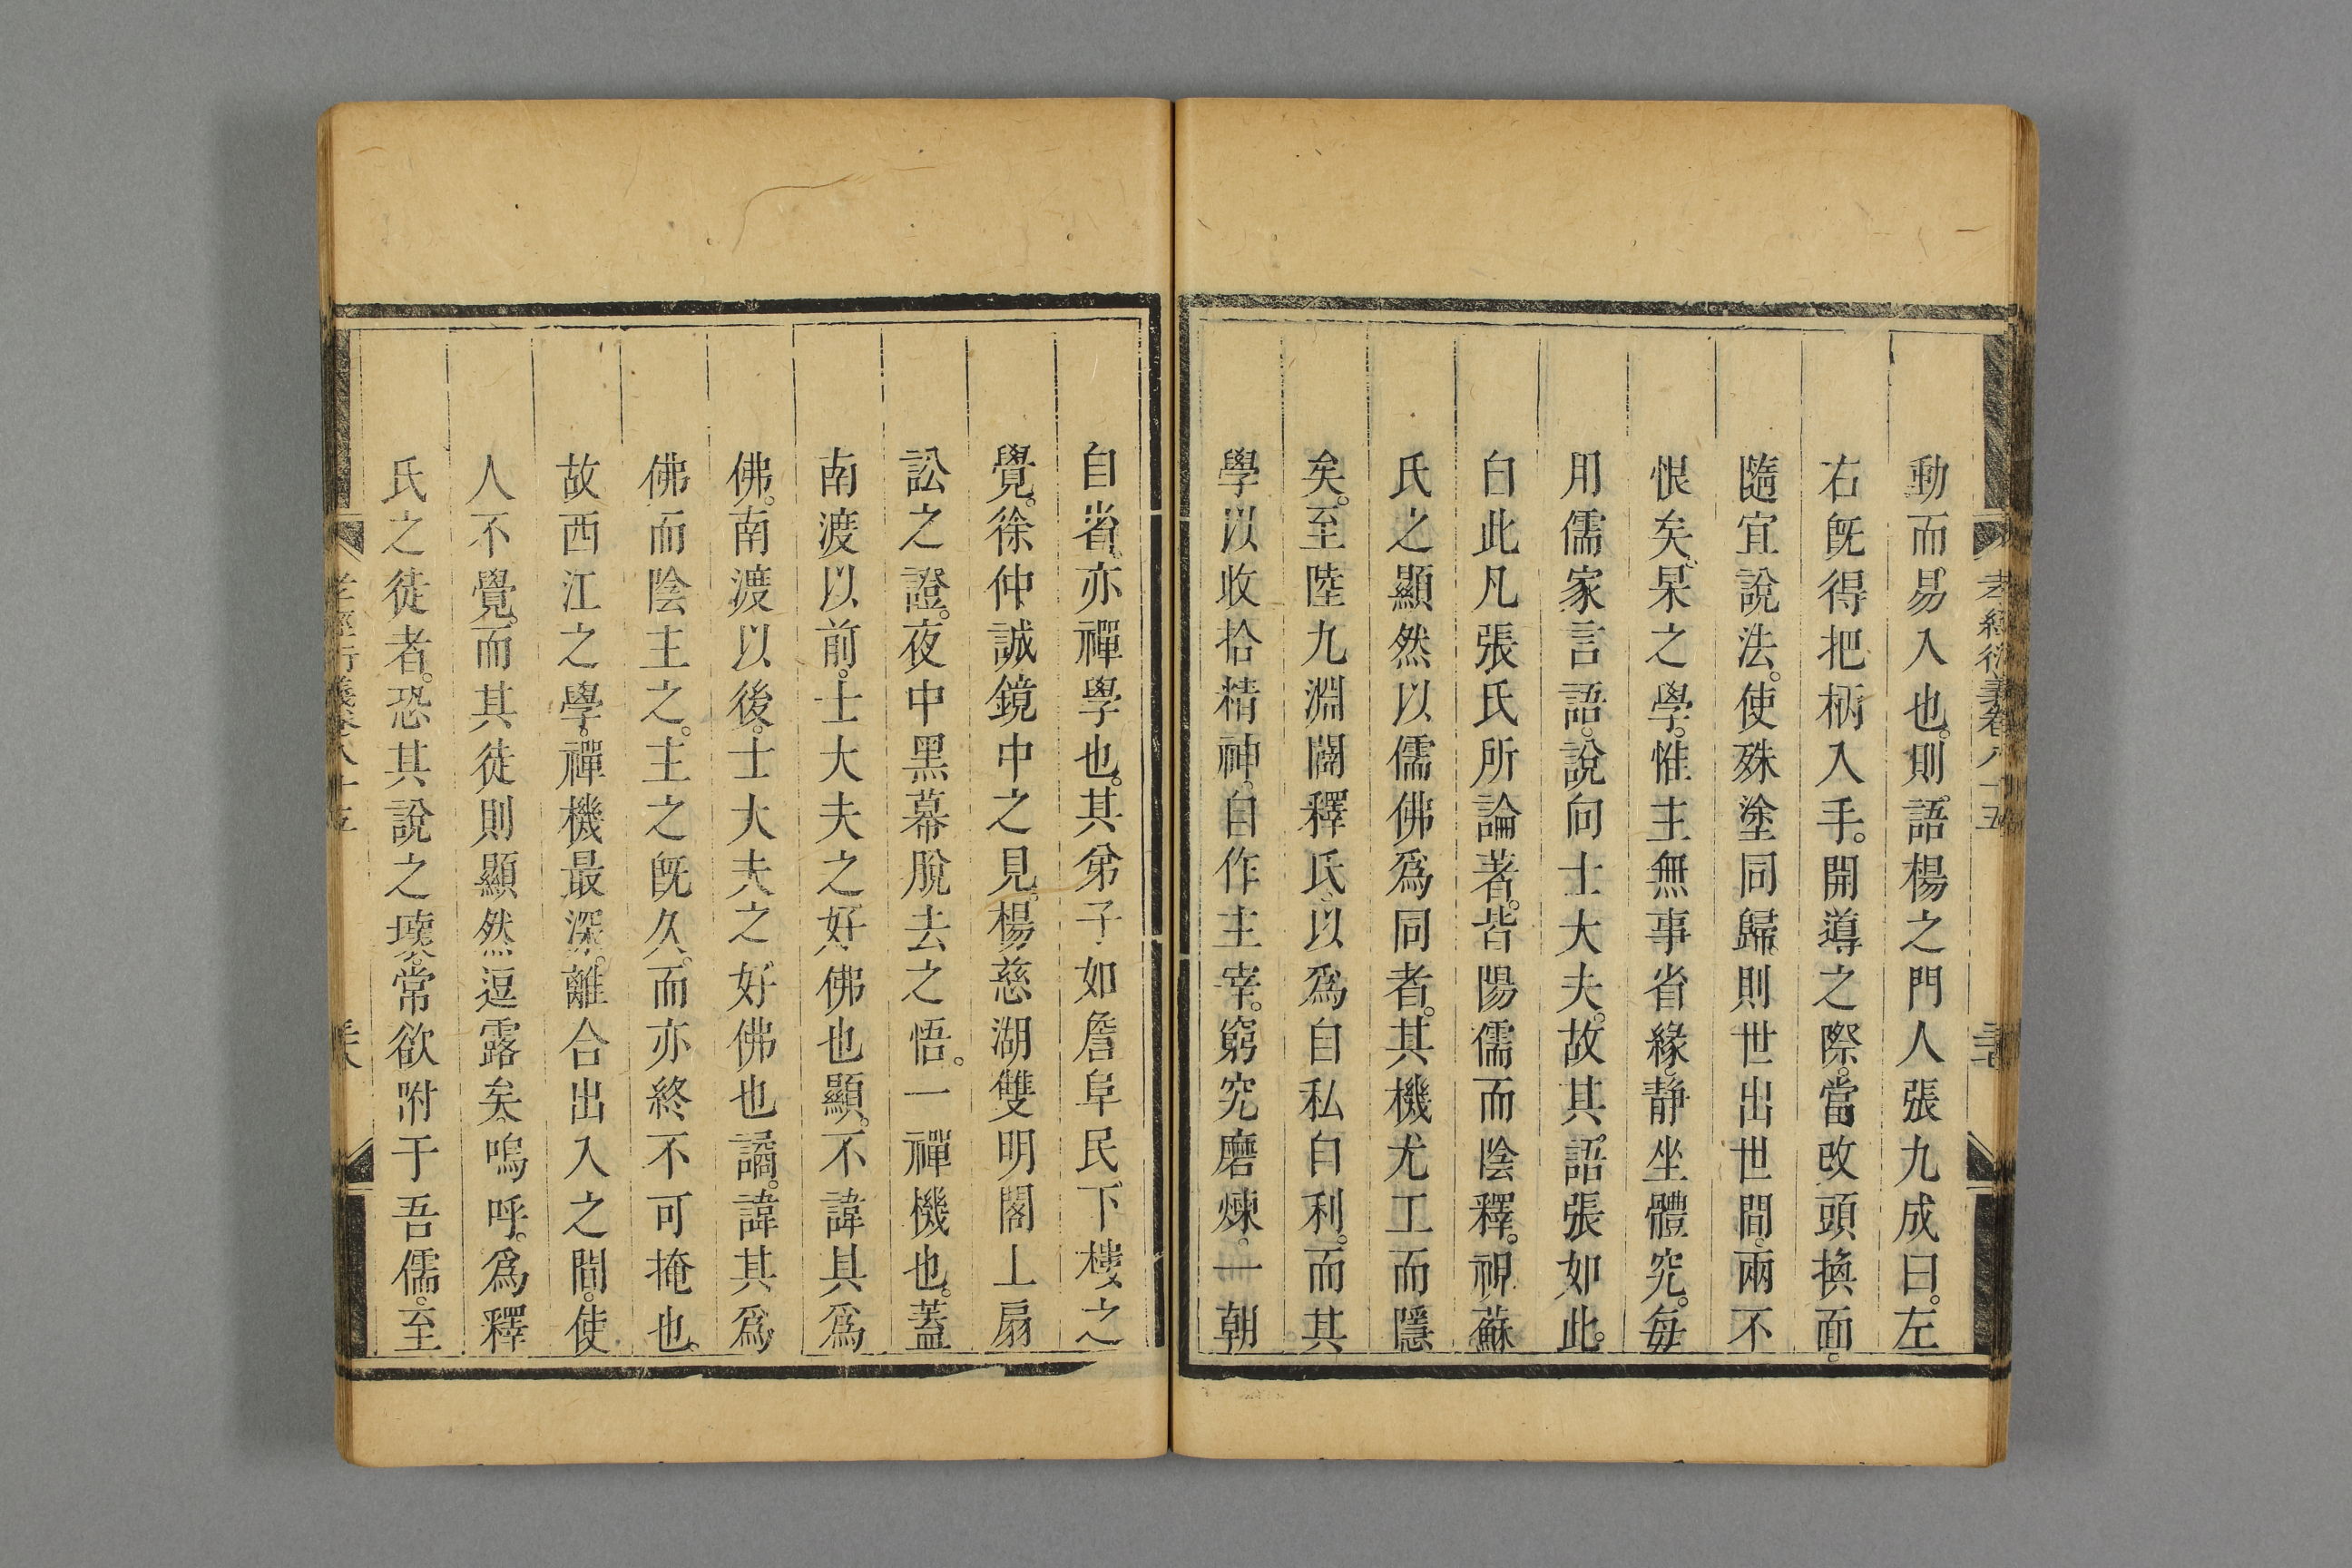 動而易入也。則語楊之門人張九成曰。左
右既得把柄入手。開導之際。當改頭換面。
隨宜說法。使殊塗同歸。則世出世間。兩不
恨矣。杲之學。惟主無事省緣。静坐體究。毎
用儒家言語。說向士大夫。故其語張如此。
白此凡張氏所論著。皆陽儒而陰釋。視蘇
氏之顯然以儒佛爲同者。其機尤工而隱
矣。至陸九淵闢釋氏。以爲自私自利。而其
學以收拾精神。自作主宰。窮究磨煉。一朝
自省。亦禪學也。其弟子如詹阜民下樓之
覺。徐仲誠鏡中之見。楊慈湖雙明閣上扇
訟之證。夜中黑幕脫去之悟。一禪機也。蓋
南渡以前。士大夫之好佛也顯。不諱其爲
佛。南渡以後。士大夫之好佛也譎。諱其爲
佛而陰主之。主之既久。而亦終不可掩也。
故西江之學。禪機最深。離合出入之間。使
人不覺。而其徒則顯然逗露矣。嗚呼。爲釋
氏之徒者。恐其說之壞。常欲附于吾儒。至
孝經衍義卷八十五